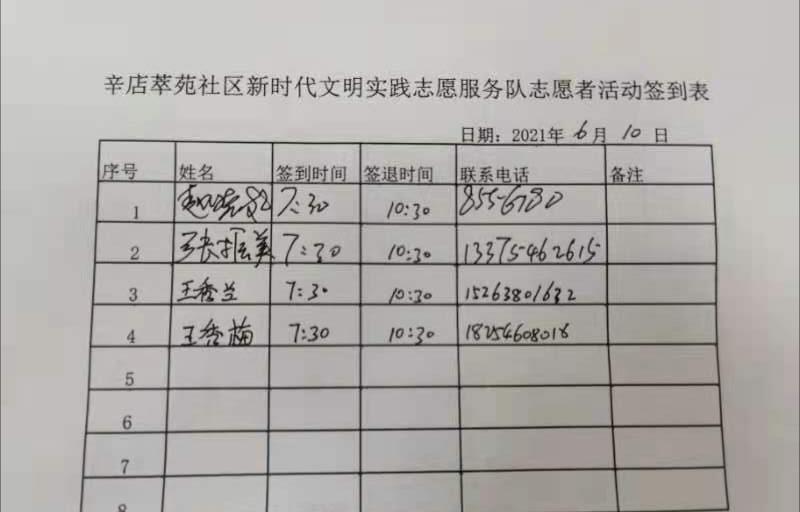 辛店萃苑社区新时代文明实践志愿服务队志愿者活动签到表
日期：2021年 6月 10 日
序号 姓名 签到时间 签退时间 联系电话 备注
1 赵 7:30 10:30 8556780
2 张振美 7:30 10:30 13375462615
3 王秀兰 7:30 10:30 15263801632
4 王秀梅 7:30 10:30 18254608018
5
6
7
8